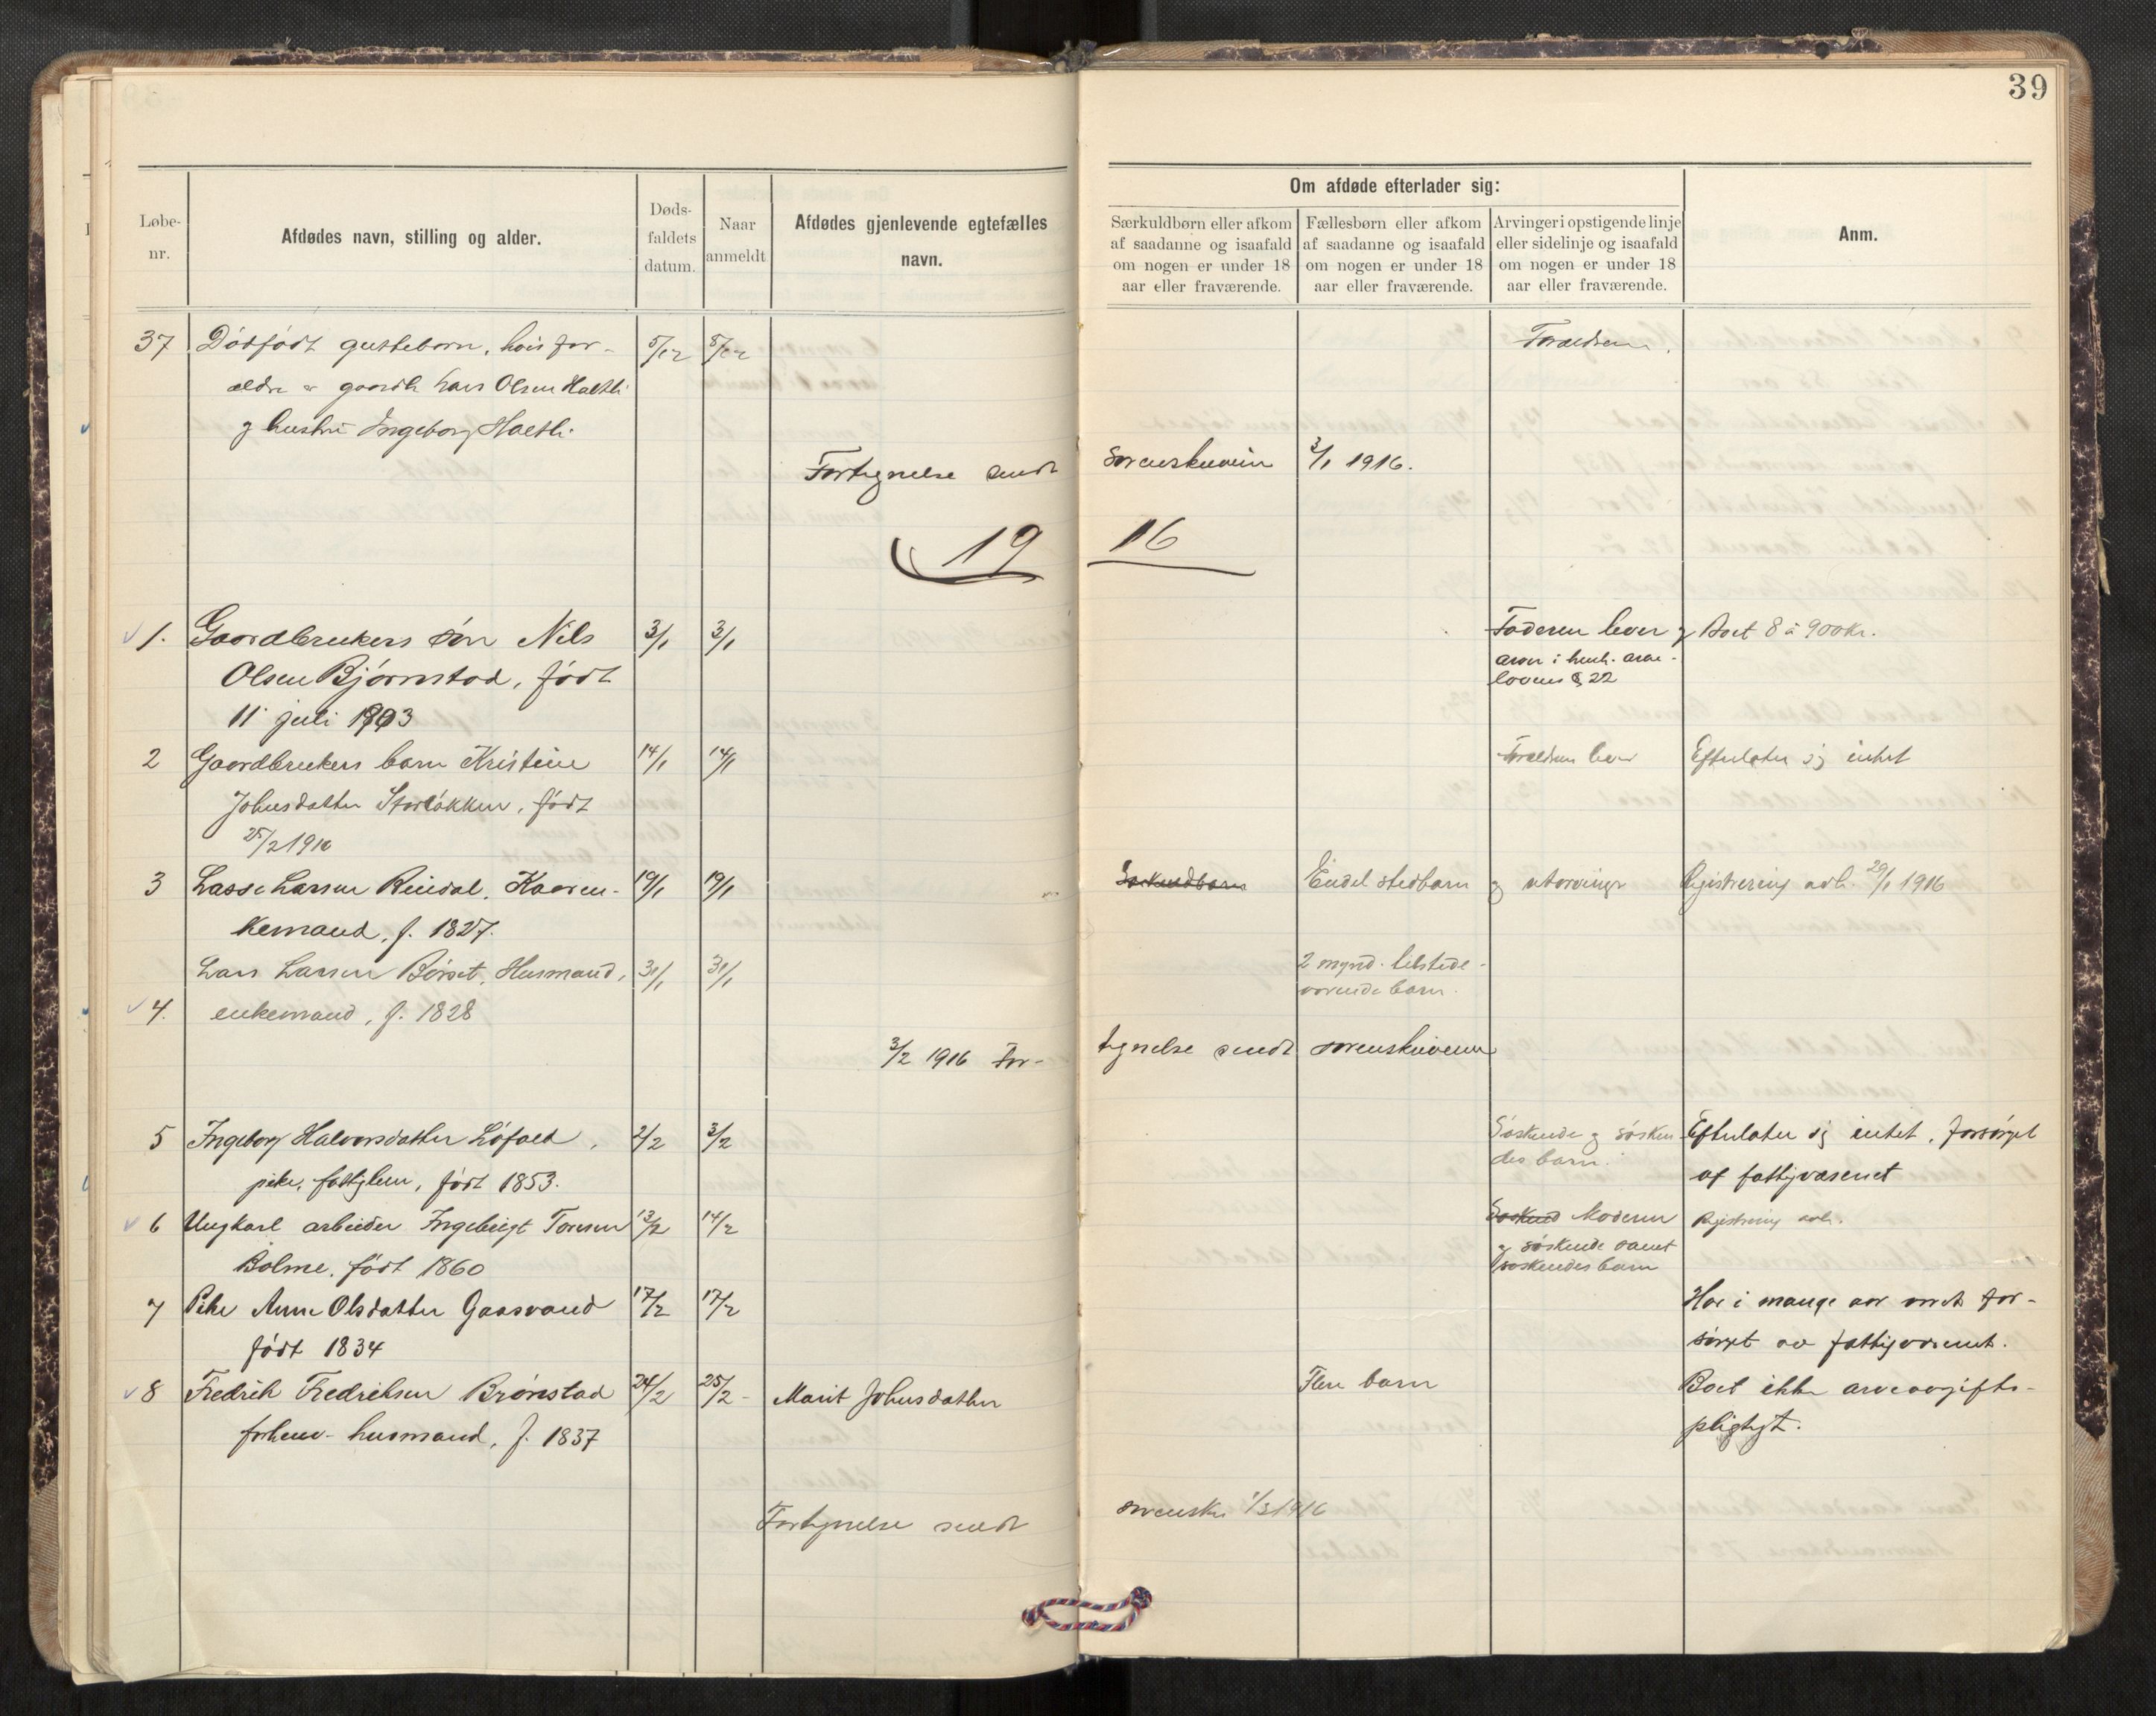 39
Løbe-
nr.
Afdødes navn, stilling og alder.
Døds-
faldets
datum.
Naar
anmeldt
Afdødes gjenlevende egtefælles
navn.
Om afdøde efterlader sig:
Særkuldbørn eller afkom
af saadanne og isaafald
om nogen er under 18
aar eller fraværende.
Fællesbørn eller afkom
af saadanne og isaafald
om nogen er under 18
aar eller fraværende.
Arvinger i opstigende linje
eller sidelinje og isaafald
om nogen er under 18
aar eller fraværende.
Anm.
37 Dødfødt guttebarn, hvis for- 5/12 8/12 Forældrene.
ældre er gaardb. Lars Olsen Haltli
og hustru Ingeborg Haltli.
Fortegnelse sendt Sorenskriveren 3/1 1916.
19 16
1. Gaardbrukers søn Nils 3/1 3/1 Faderen lever og Boet 8 à 900 kr.
Olsen Bjørnstad, født arver i henh. arve-
11 juli 1903 lovens § 22
2 Gaardbrukers barn Kristine 14/1 14/1 Forældrene lever Efterlater sig intet
Johnsdatter Storløkken, født
25/2 1910
3 Lasse Larsen Reindal, Kaaren- 19/1 19/1 Søskendbarn Endel stedbarn og utarvinger Registrering avh. 29/1 1916
kemand, f. 1827.
Lars Larsen Børset, Husmand, 31/1 31/1 2 mynd. tilstede-
4. enkemand, f. 1828 værende barn.
3/2 1916 For- tegnelse sendt sorenskriveren
5 Ingeborg Halvorsdatter Løfald, 2/2 3/2 Søskende og søsken- Efterlater sig intet, forsørget
pike, fattiglem, født 1853. des barn. af fattigvæsenet
6 Ungkarl arbeider Ingebrigt Toresen 13/2 14/2 Søskend Moderen Registrering avh.
Bolme, født 1860 og søskende samt
søskendes barn
7 Pike Anne Olsdatter Gaasvand 17/2 17/2 Har i mange aar været for-
født 1834 sørget av fattigvæsenet.
8 Fredrik Fredriksen Brønstad 24/2 25/2 Marit Johnsdatter Flere barn Boet ikke arveavgifts-
forhenv. husmand, f. 1837 pligtigt.
Fortegnelse sendt sorenskr 1/3 1916